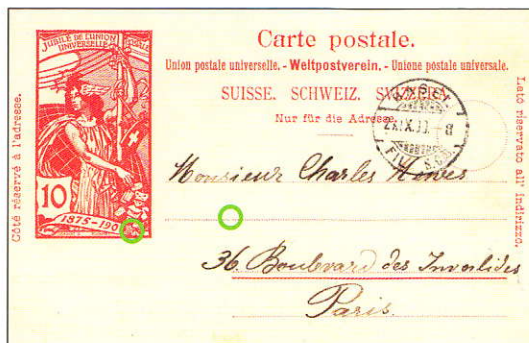 JUBILÉ DE L'UNION POSTALE
UNIVERSELLE
10
1875-190
Côté réservé à l'adresse.
Carte postale.
Union postale universelle. - Weltpostverein. - Unione postale universale.
SUISSE. SCHWEIZ. SVIZZERA.
Nur für die Adresse.
Lato riservato all' indirizzo.
Monsieur Charles
36. Boulevard des Invalides
Paris.